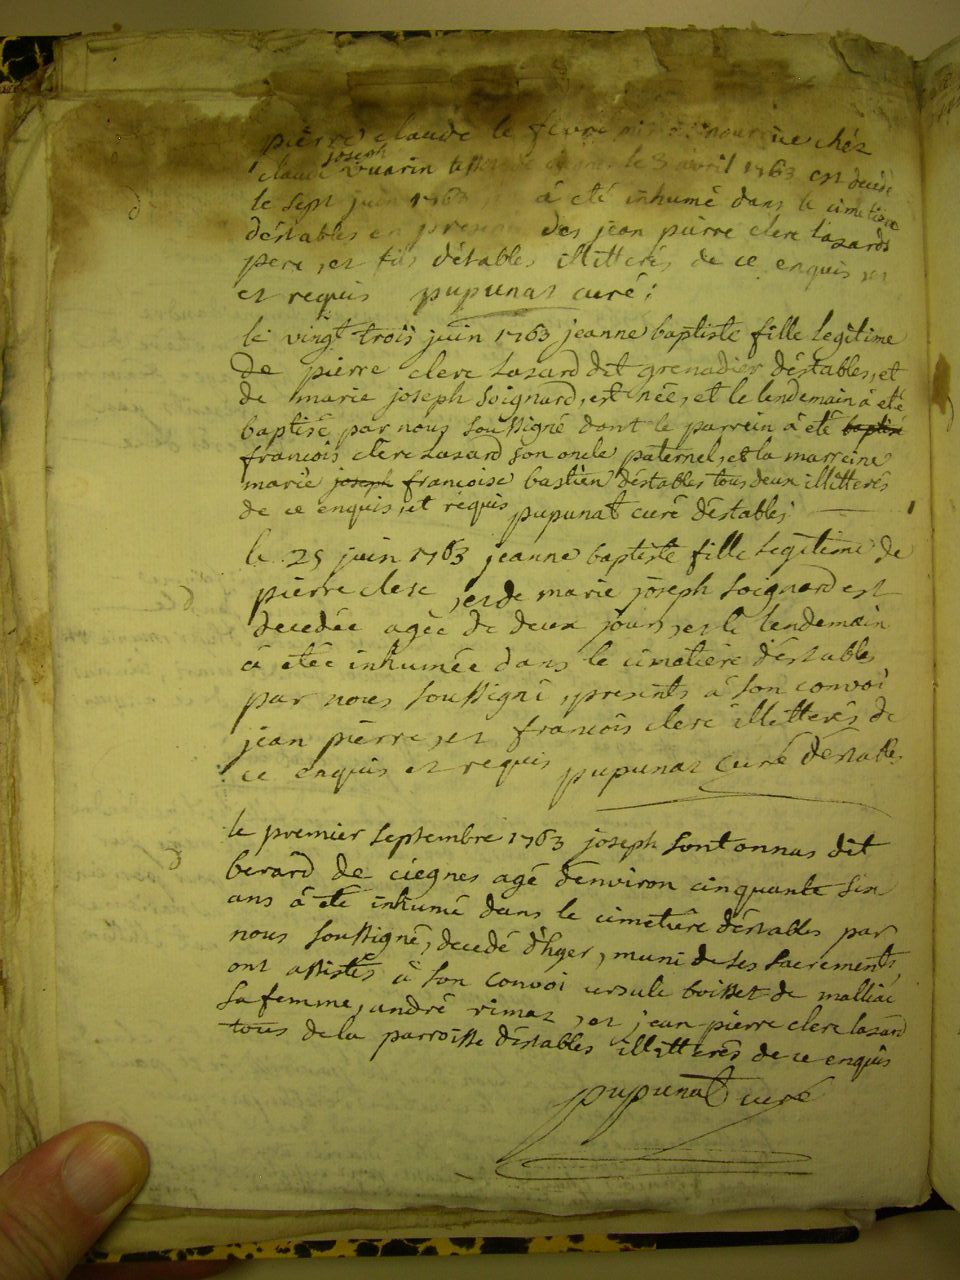 pierre claude le fevre mis en nourrice chéz
claude joseph vuarin le 3 avril 1763 est decédé
le sept juin 1763 à été inhumé dans le cimetiere
déstables en presence des jean pierre clerc lazard
pere, et fils déstables illitterés de ce enquis, et
et requis pupunat curé;
d
le vingt trois juin 1763 jeanne baptiste fille legitime
De pierre clerc Lazard dit grenadier déstables, et
de marie joseph Soignard, est née, et le lendemain à eté
baptisé par nous soussigné dont le parrein à été baptisé
francois clerc Lazard son oncle paternel, et la marreine
marie joseph francoise bastien déstables tous deux illitterés
de ce enquis, et requis pupunat curé déstables
le 25 juin 1763 jeanne baptiste fille Legitime de
pierre clerc, et de marie joseph Soignard est
decedée agée de deux jours, et le lendemain
à etée inhumée dans le cimetière déstables
par nous soussigné, presents à son convoi
jean pierre, et francois clerc illitterés de
ce enquis et requis pupunat curé déstables
d
le premier septembre 1763 joseph sontonnas dit
berard de ciégnes agé d'environ cinquante six
ans à été inhumé dans le cimetière déstables par
nous soussigné, decedé d'hyer, muni de ses sacrements,
ont assistés à son convoi ursule boisset de malliac
sa femme, andré rimaz, et jean pierre clerc lasard
tous de la parroisse déstables illitterés de ce enquis
pupunat curé